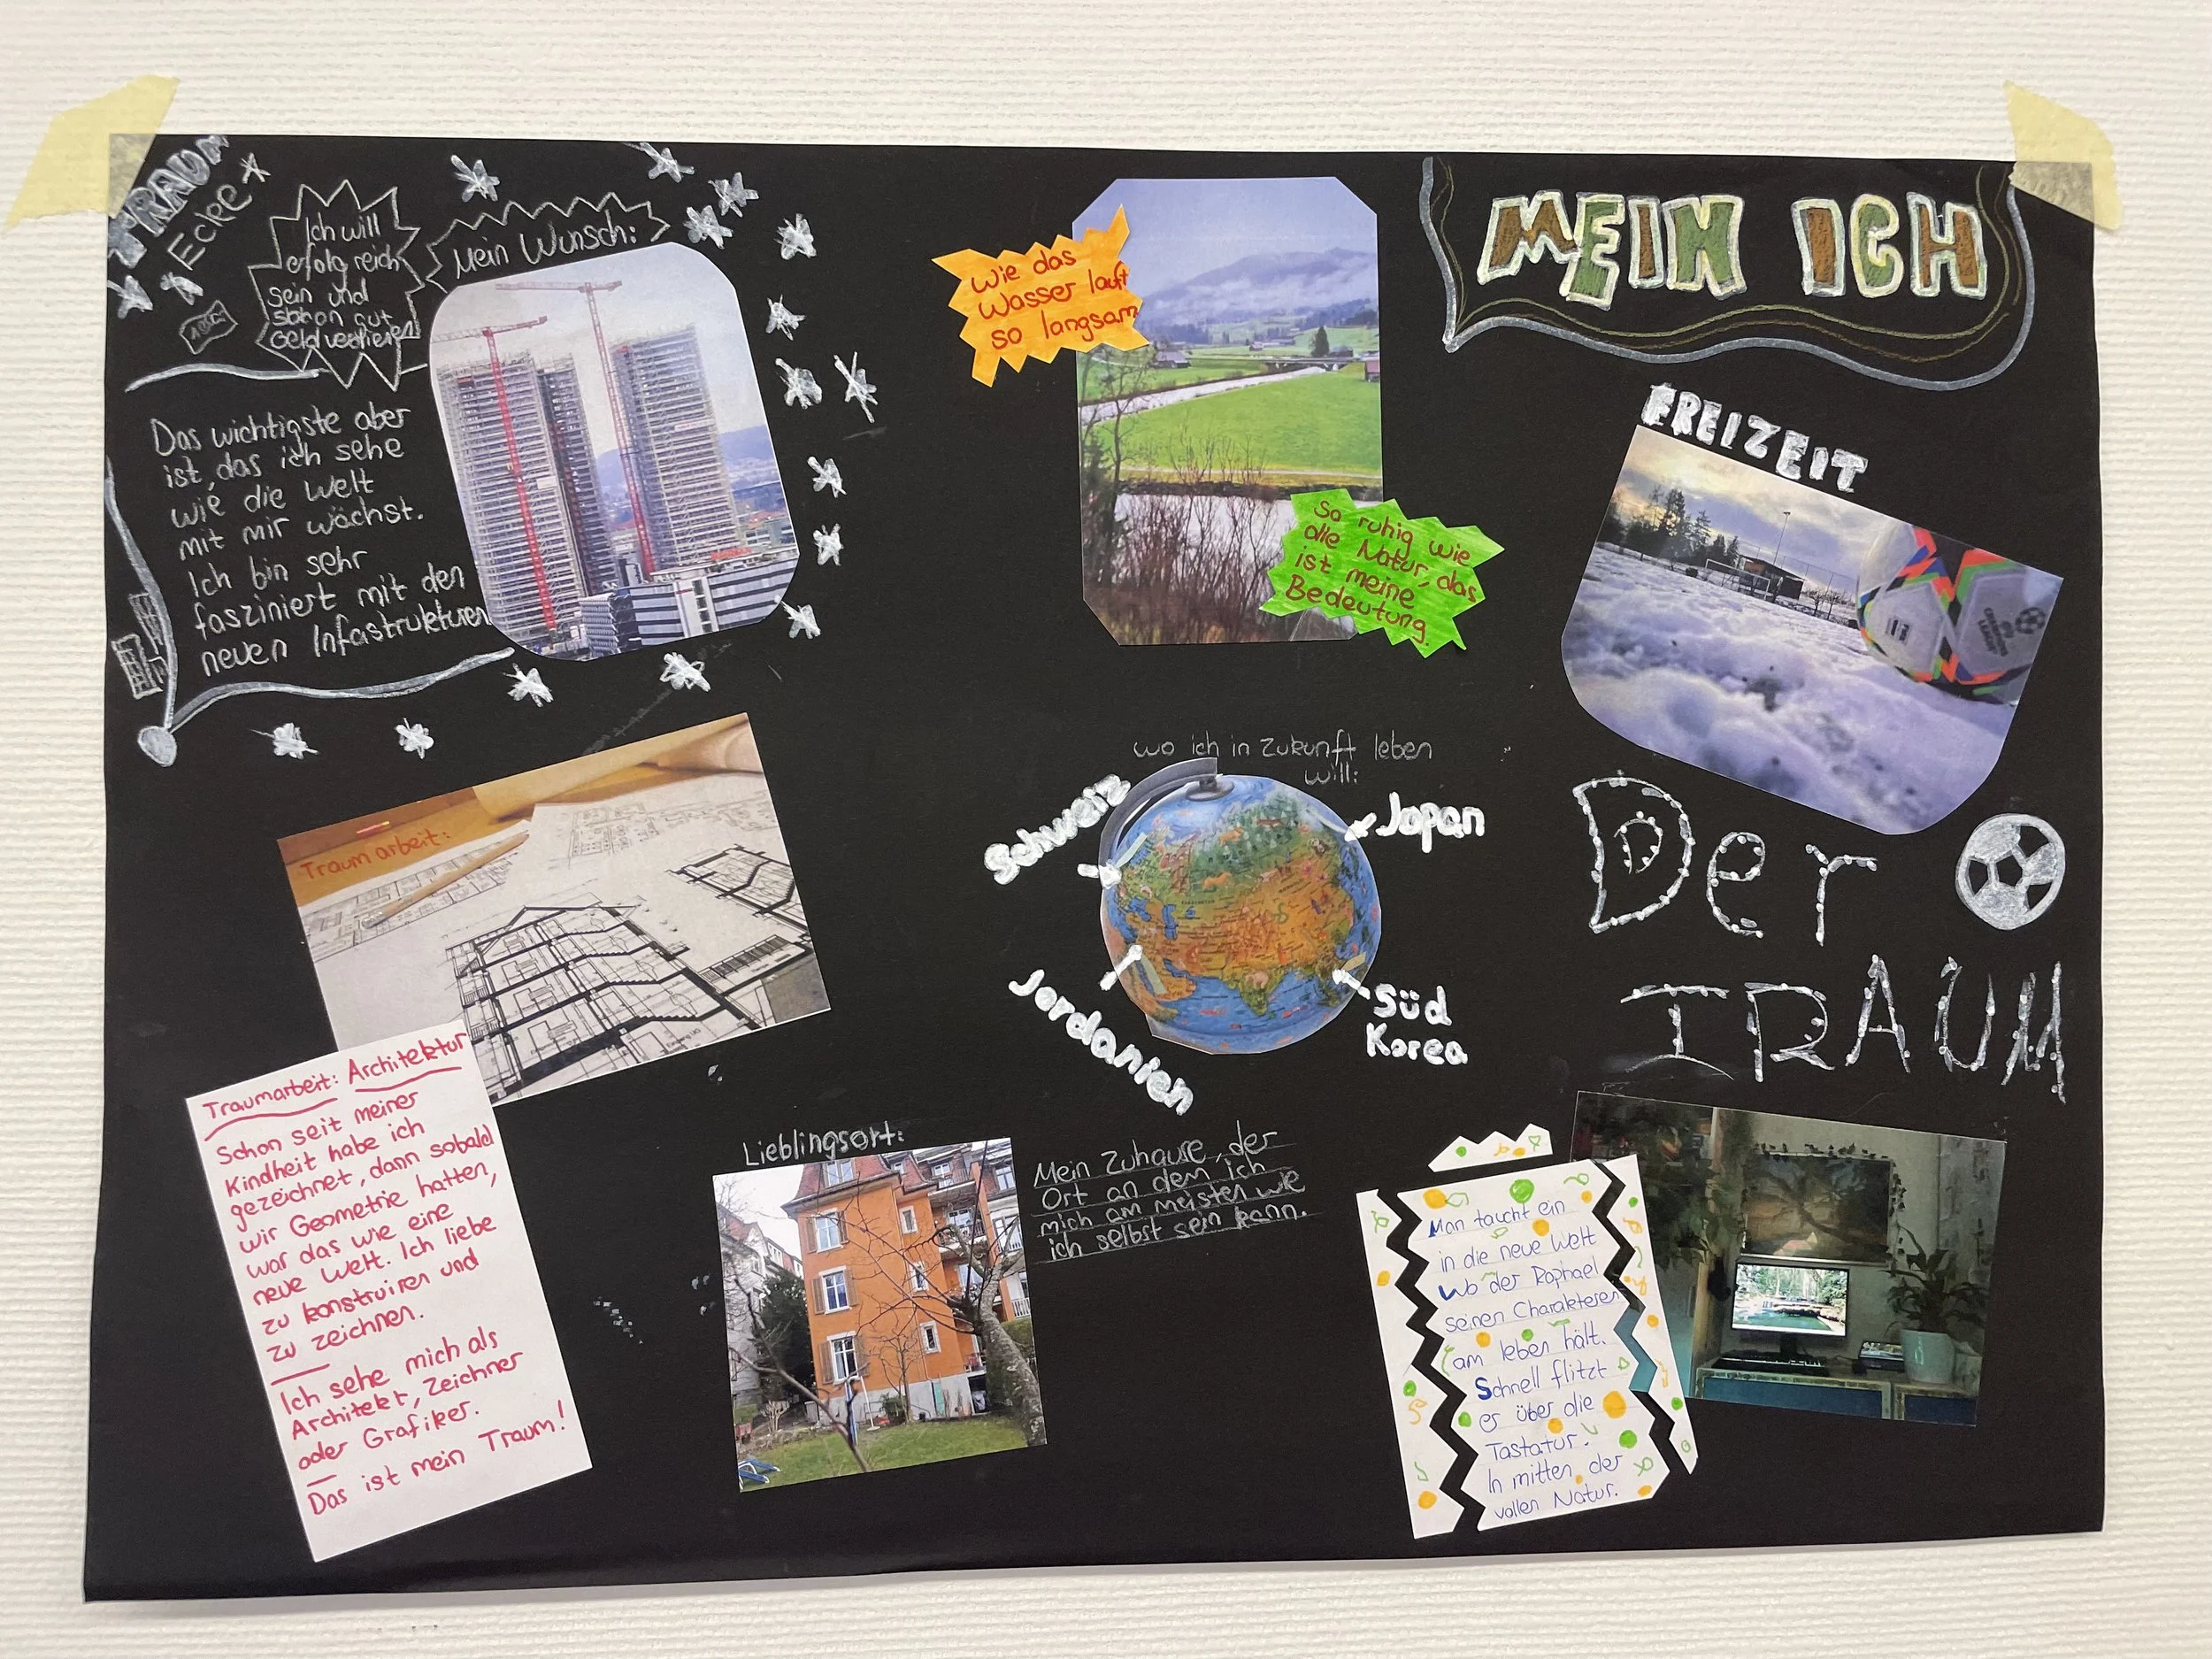 TRAUM
Ecke
Ich will
erfolgreich
sein und
schon gut
Geld verdienen
Mein Wunsch:
Das wichtigste aber
ist, das ich sehe
wie die Welt
mit mir wächst.
Ich bin sehr
fasziniert mit den
neuen Infastrukturen
Wie das
Wasser lauft
so langsam
So ruhig wie
die Natur, das
ist meine
Bedeutung.
MEIN ICH
FREIZEIT
Der
TRAUM
wo ich in Zukunft leben
will:
Schweiz
Japan
Jordanien
Süd
Korea
Traumarbeit:
Traumarbeit: Architektur
Schon seit meiner
Kindheit habe ich
gezeichnet, dann sobald
wir Geometrie hatten,
war das wie eine
neue Welt. Ich liebe
zu konstruiren und
zu zeichnen.
Ich sehe mich als
Architekt, Zeichner
oder Grafiker.
Das ist mein Traum!
Lieblingsort:
Mein Zuhause, der
Ort an dem ich
mich am meisten wie
ich selbst sein kann.
Man taucht ein
in die neue Welt
Wo der Raphael
seinen Charakteren
am leben hält.
Schnell flitzt
er über die
Tastatur.
In mitten der
vollen Natur.